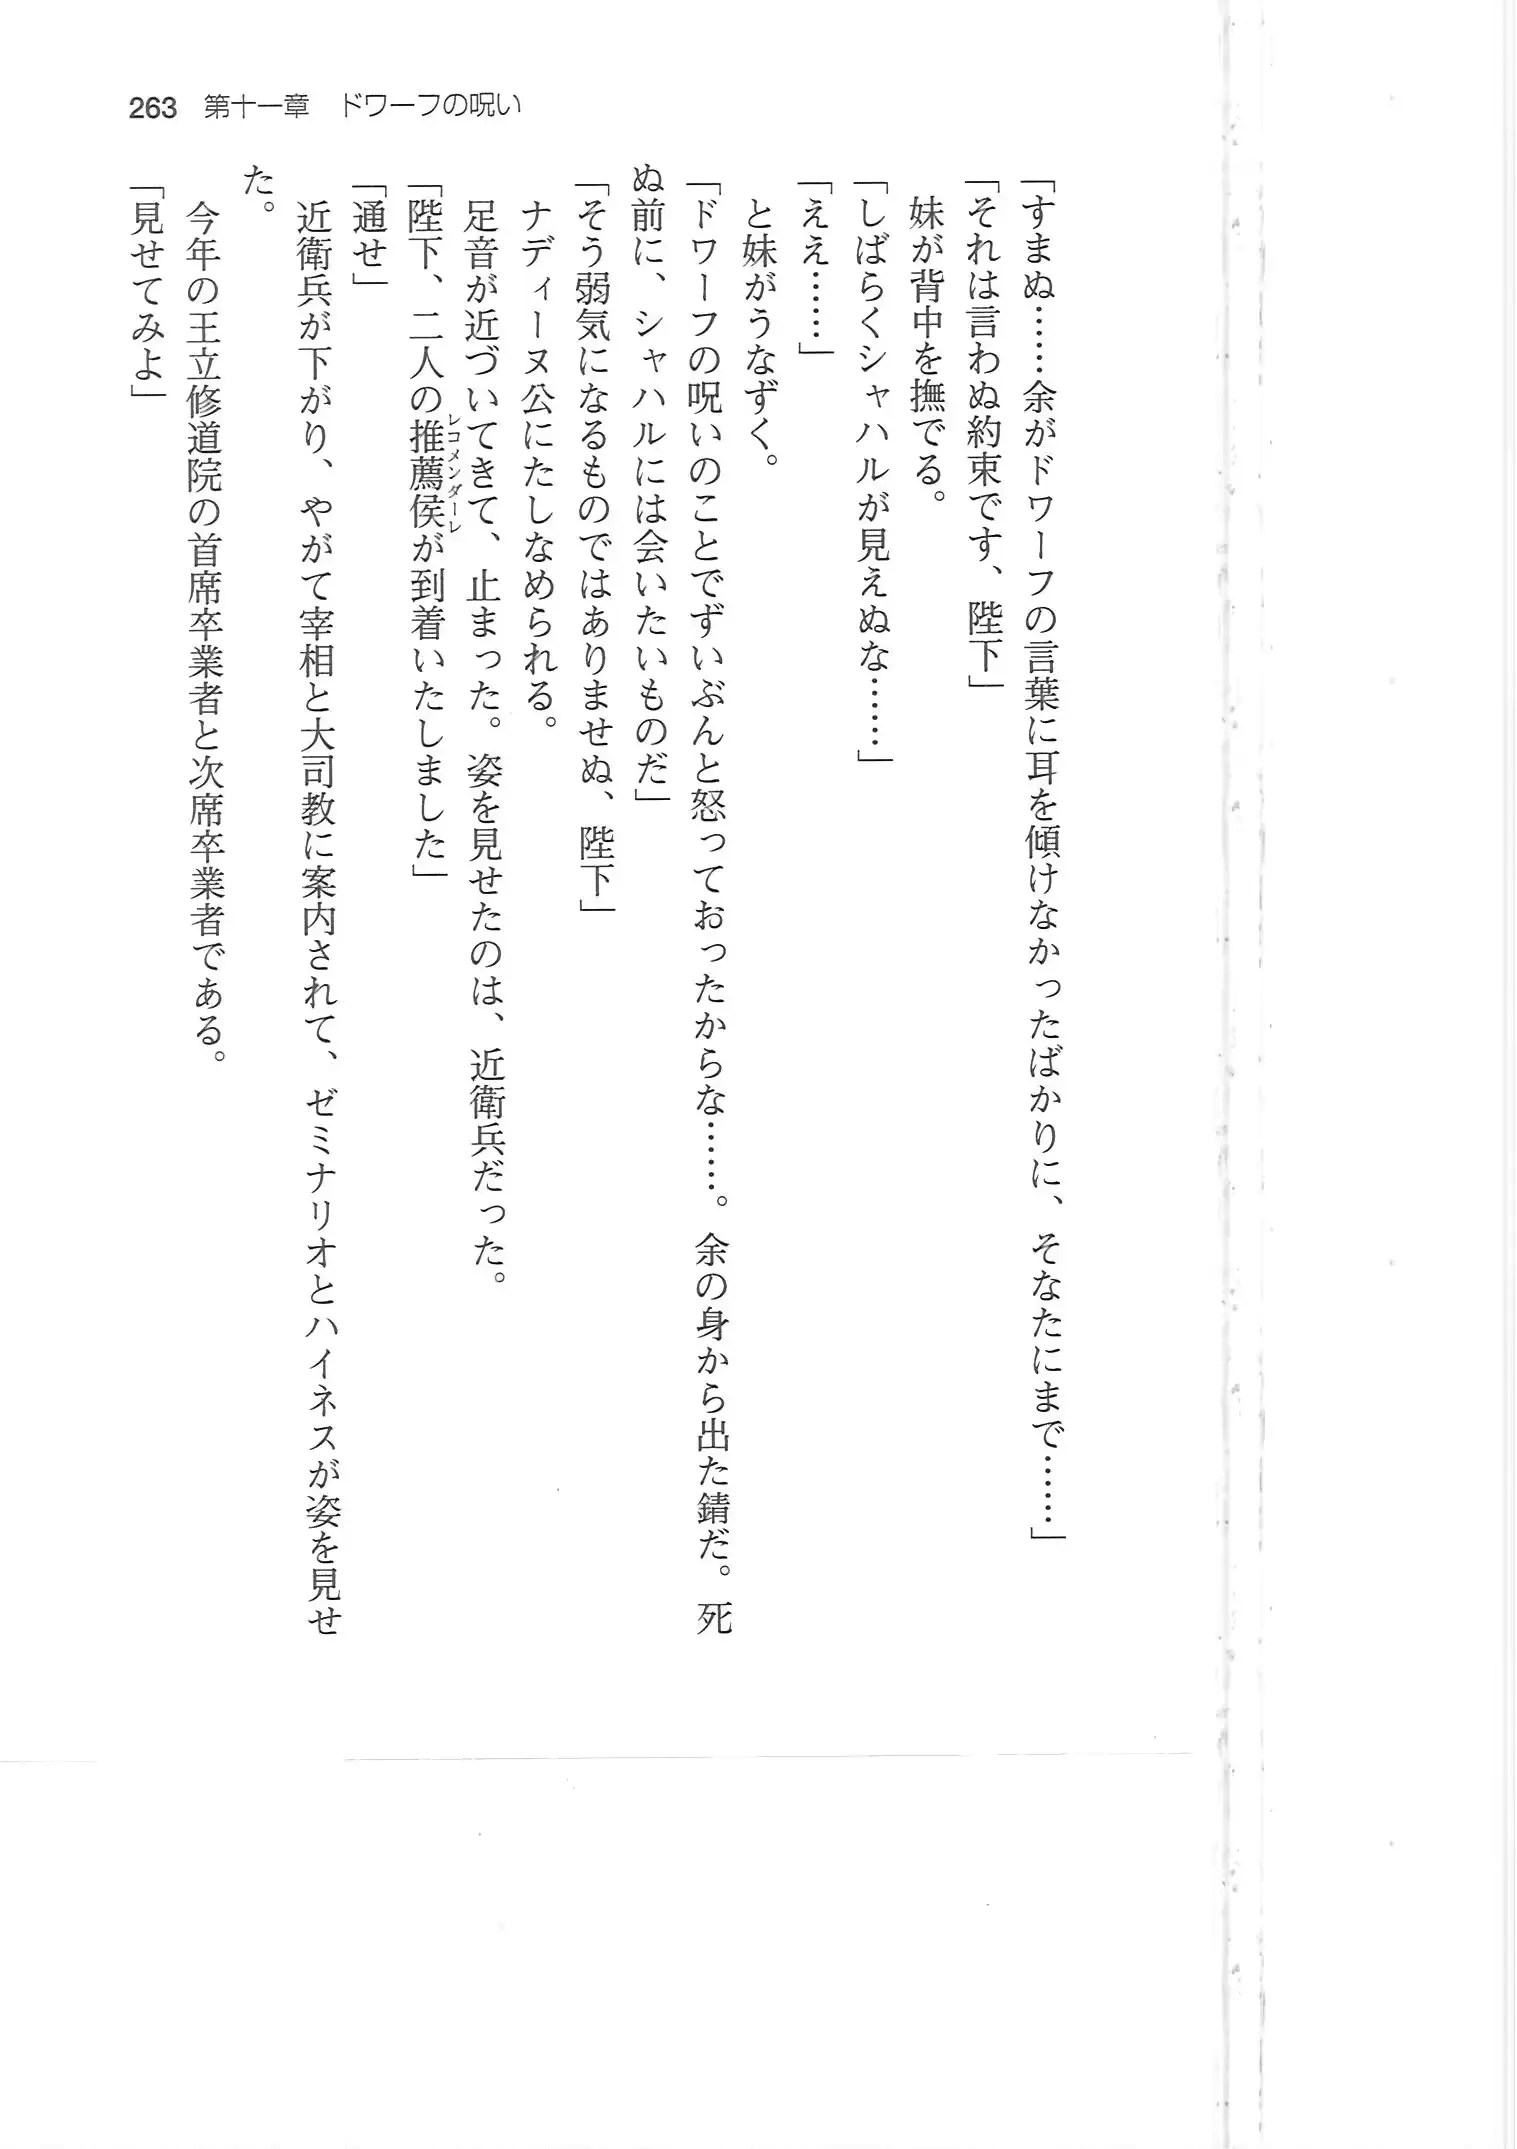 263 第十一章 ドワーフの呪い
「すまぬ……余がドワーフの言葉に耳を傾けなかったばかりに、そなたにまで……」
「それは言わぬ約束です、陛下」
妹が背中を撫でる。
「しばらくシャハルが見えぬな……」
「ええ……」
と妹がうなずく。
「ドワーフの呪いのことでずいぶんと怒っておったからな……。余の身から出た錆だ。死
ぬ前に、シャハルには会いたいものだ」
「そう弱気になるものではありませぬ、陛下」
ナディーヌ公にたしなめられる。
足音が近づいてきて、止まった。姿を見せたのは、近衛兵だった。
「陛下、二人の推薦侯レコメンダーレが到着いたしました」
「通せ」
近衛兵が下がり、やがて宰相と大司教に案内されて、ゼミナリオとハイネスが姿を見せ
た。
今年の王立修道院の首席卒業者と次席卒業者である。
「見せてみよ」